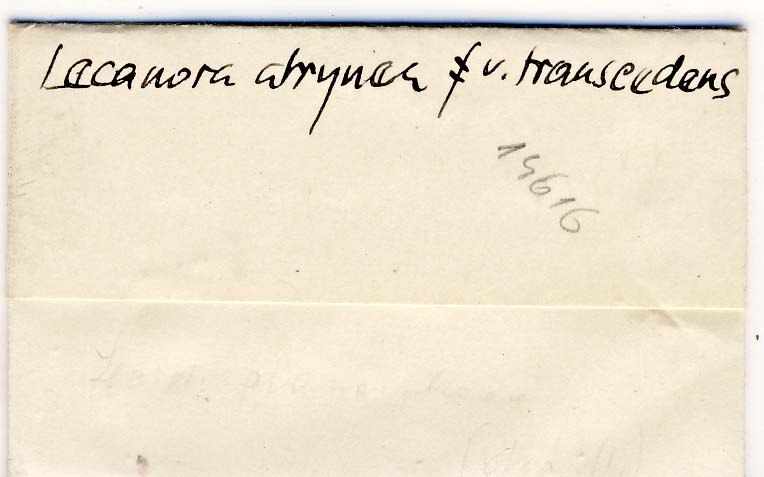 Lecanora atrynea f v. transcedens
14616